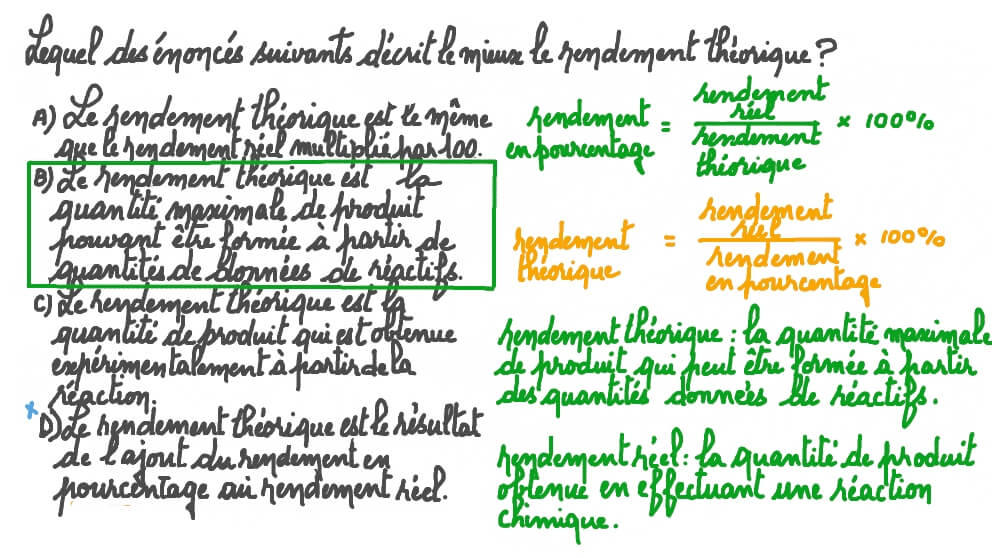 Lequel des énoncés suivants décrit le mieux le rendement théorique ?
A) Le rendement théorique est le même
que le rendement réel multiplié par 100.
B) Le rendement théorique est la
quantité maximale de produit
pouvant être formée à partir de
quantités de données de réactifs.
C) Le rendement théorique est la
quantité de produit qui est obtenue
expérimentalement à partir de la
réaction.
x
D) Le rendement théorique est le résultat
de l'ajout du rendement en
pourcentage au rendement réel.
rendement
en pourcentage
=
rendement
réel
rendement
théorique
× 100%
rendement
théorique
=
rendement
réel
rendement
en pourcentage
× 100%
rendement théorique : la quantité maximale
de produit qui peut être formée à partir
des quantités données de réactifs.
rendement réel : la quantité de produit
obtenue en effectuant une réaction
chimique.